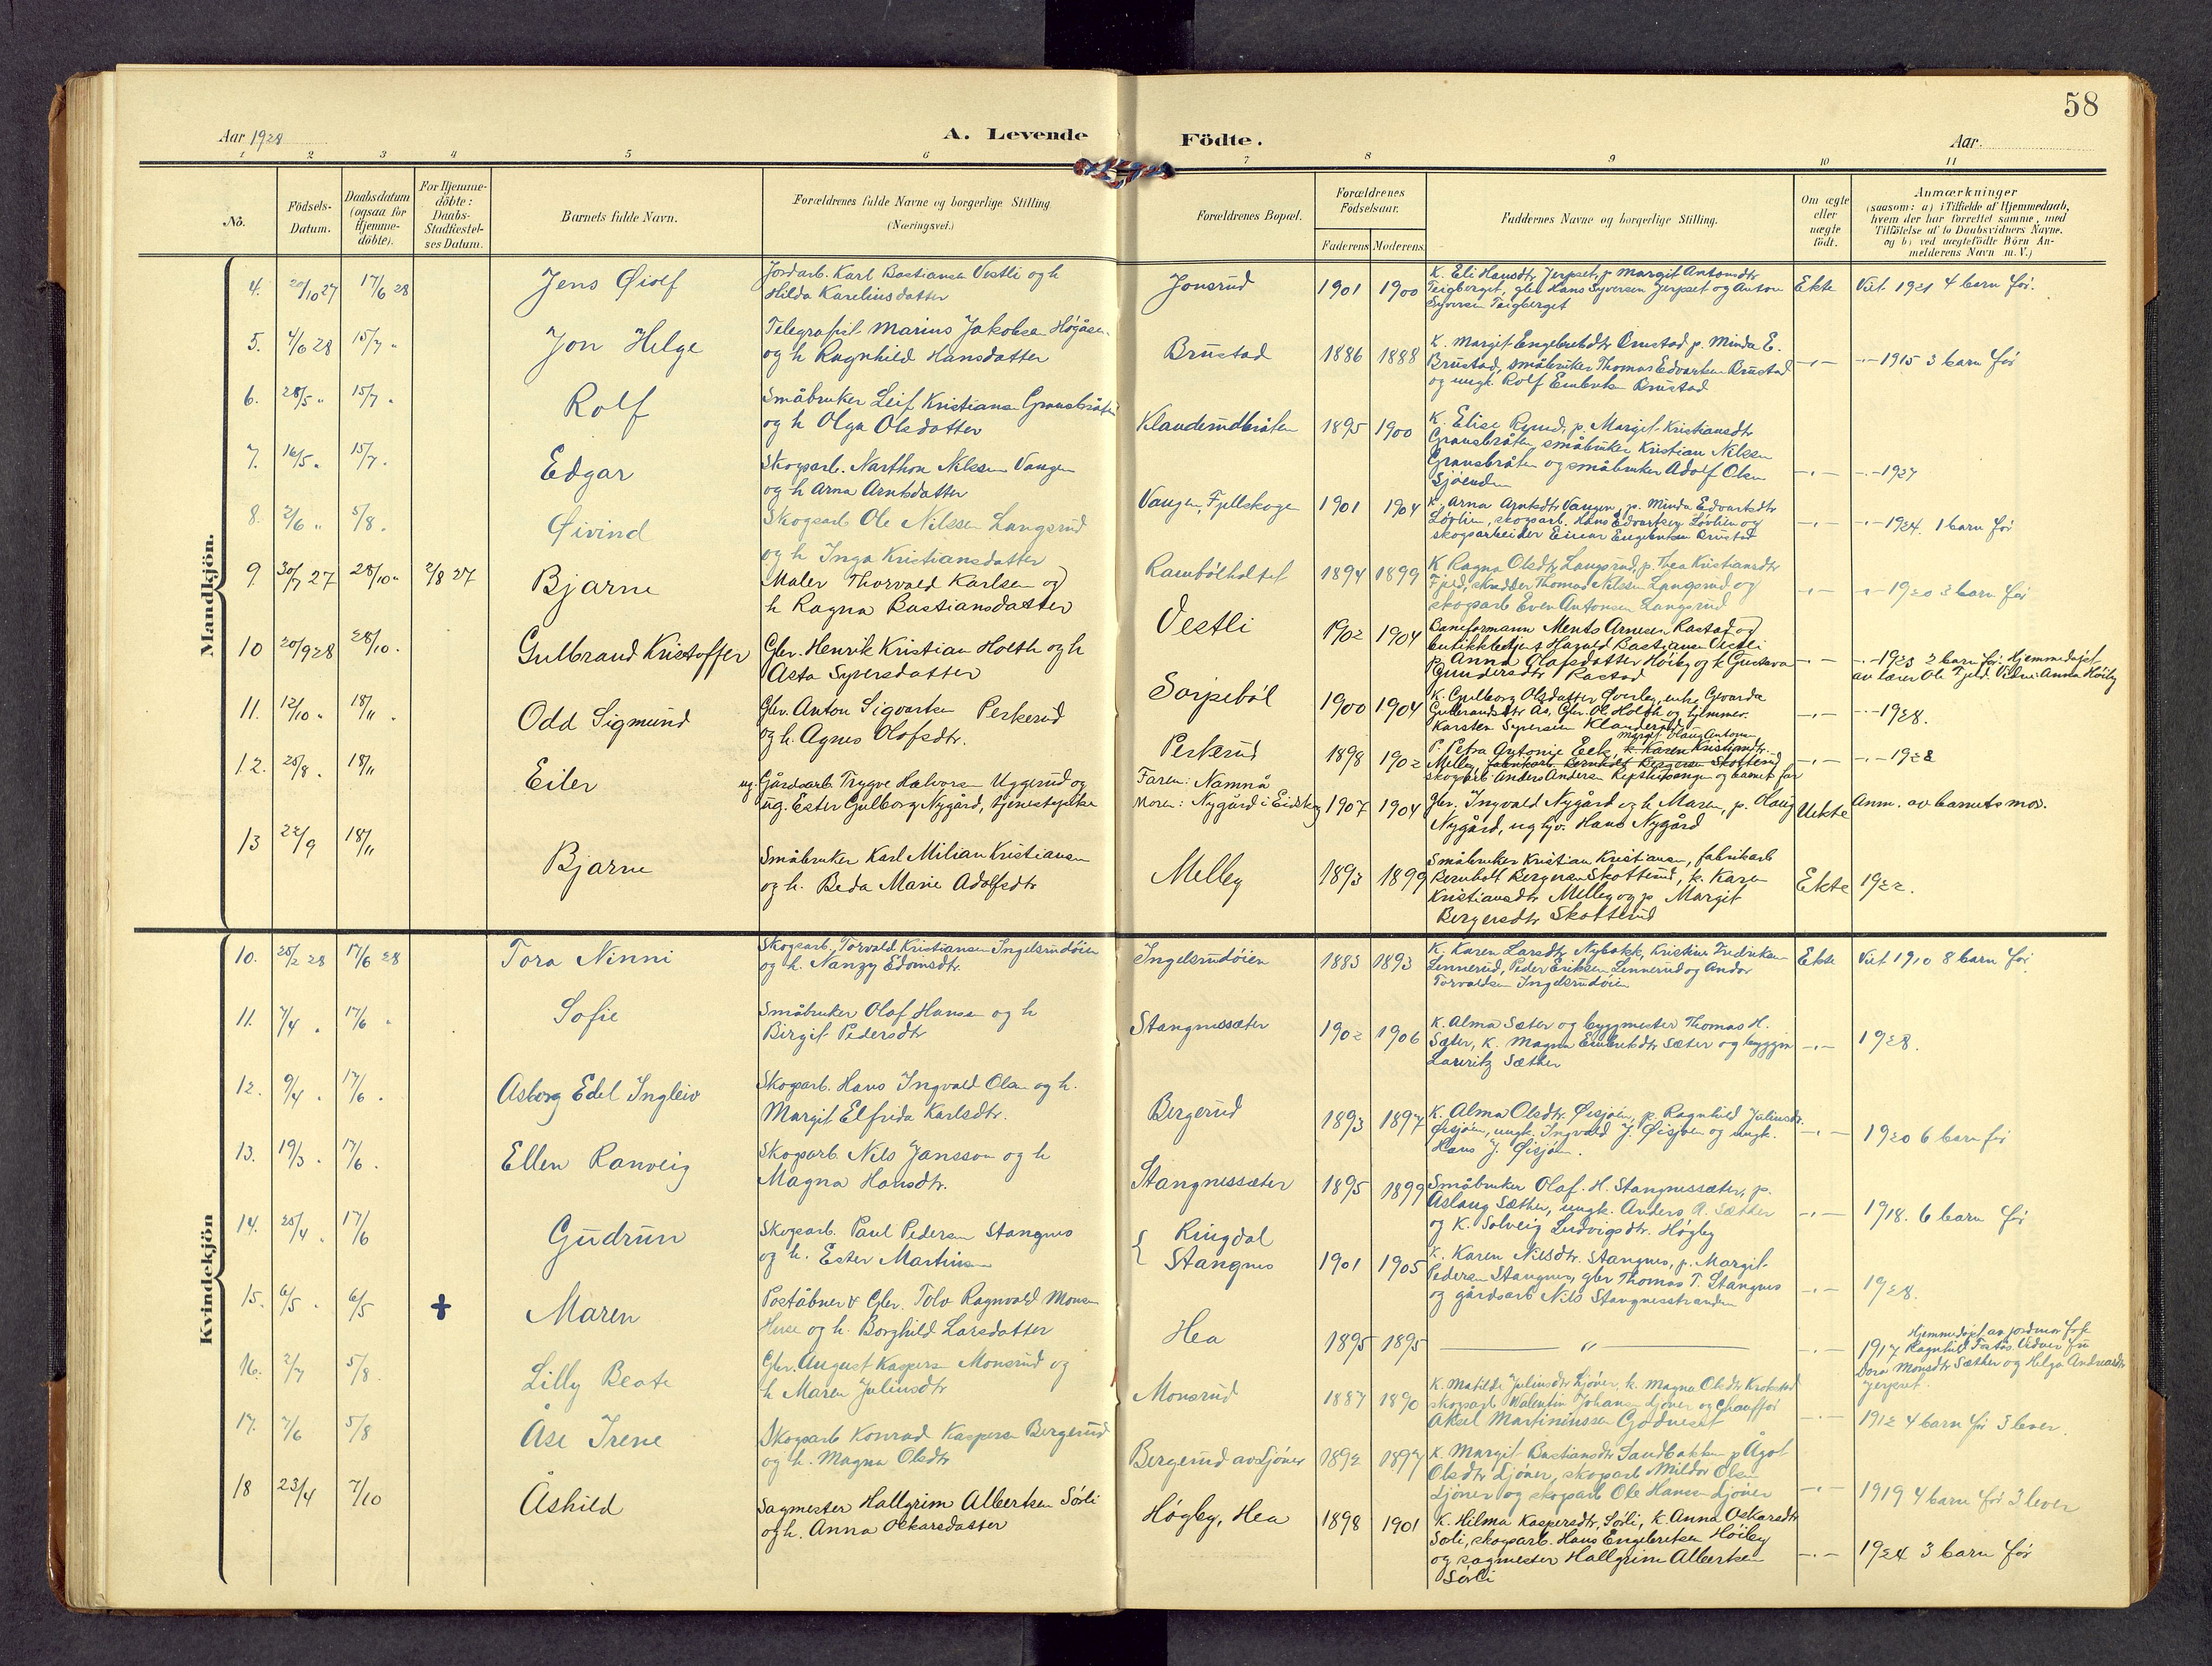 58
Aar 1928
A. Levende Födte.
Aar.
1 2 3 4 5 6 7 8 9 10 11
No.
Födsels-
Datum.
Daabsdatum
(ogsaa for
Hjemme-
döbte).
For Hjemme-
döbte:
Daabs-
Stadfæstel-
ses Datum.
Barnets fulde Navn.
Forældrenes fulde Navne og borgerlige Stilling
(Næringsvei.)
Forældrenes Bopæl.
Forældrenes
Födselsaar.
Faderens Moderens.
Faddernes Navne og borgerlige Stilling.
Om ægte
eller
uægte
födt.
Anmærkninger
(saasom: a) i Tilfælde af Hjemmedaab,
hvem der har forrettet samme, med
Tilföielse af to Daabsvidners Navne.
og b) ved uægtefödte Börn An-
melderens Navn m. V.)
Mandkjön.
4. 20/10 27 17/6 28
Jens Øiolf
Jordarb. Karl Bastiansen Vestli og h
Hilda Kareliusdatter
Jonsrud
1901 1900
K. Eli Hansdtr Jerpset, p Margit Antonsdtr
Teigberget, gbr Hans Syversen Jerpset og Anton
Syversen Teigberget
Ekte
Viet 1921 4 barn før.
5. 4/6 28 15/7 "
Jon Helge
Telegrafist Marius Jakobsen Högåsen
og h Ragnhild Hansdatter
Brustad
1886 1888
K. Margit Engebretsdtr Brustad p. Minda E.
Brustad, småbruker Thomas Edvartsen Brustad
og ungk. Rolf Embretsen Brustad
-"-
-"- 1915 3 barn før
6. 28/5 " 15/7 "
Rolf
Småbruker Leif Kristiansen Gransbråten
og h Olga Olsdatter
Klanderudbråten
1895 1900
K. Elise Rynd, p. Margit Kristiansdtr
Gransbråten, småbruker Kristian Nilsen
Gransbråten og småbruker Adolf Olsen
Sjöenden
-"-
-"- 1927
7. 16/5 " 15/7 "
Edgar
Skogsarb. Narthon Nilssen Vangen
og h Arna Arntsdatter
Vangen, Fjellskogen
1901 1904
K. Arna Arntsdtr Vangen, p. Minda Edvartsdtr
Lövlien, skogsarb. Hans Edvartsen Lövlien og
skogsarbeider Einar Engebretsen Brustad
-"-
-"- 1924. 1 barn før
8. 2/6 " 5/8 "
Øivind
Skogsarb Ole Nilssen Langsrud
og h Inga Kristiansdatter
Rambölholtet
1894 1899
K Ragna Olsdtr Langsrud, p. Thea Kristiansdtr
Fjeld, skredder Thomas Nilssen Langsrud og
skogsarb Even Antonsen Langsrud
-"-
-"- 1920 3 barn før
9 30/7 27 28/10 " 2/8 27
Bjarne
Maler Thorvald Karlsen og
h Ragna Bastiansdatter
Vestli
1902 1904
Baneformann Ments Arnesen Rastad og
butikkbetjent Harald Bastiansen Vestli
p. Anna Olafsdatter Höiby og k Gustava
Gundersdtr Rastad
-"-
-"- 1923 2 barn før. Hjemmedøpt
av lærer Ole Fjeld. Vidne: Anna Höiby
10 20/9 28 28/10 "
Gulbrand Kristoffer
Gbr. Henrik Kristian Holth og h
Asta Syversdatter
Sorpeböl
1900 1904
K. Gulborg Olsdatter Överby, enke Gevarda
Gulbrandsdtr Ås, Gbr. Ole Holth og hjemmev.
Karsten Syversen Klanderud
-"-
-"- 1928.
11. 12/10 " 18/11 "
Odd Sigmund
Gbr. Anton Sigvartsen Perkerud
og h. Agnes Olofsdtr.
Perkerud
1898 1902
Margit Olaug Antonsen
P. Petra Antonie Eek, k Karen Kristiansdtr
Melby, fabrikarb Bernholt Bergersen Skotterud
skogarb. Anders Andersen Repshusvangen og barnets far
-"-
-"- 1928
12. 25/8 " 18/11
Eiler
ug. Gårdsarb Trygve Halvorsen Uggerud og
ug. Ester Gulborg Nygård, tjenestepike
Faren: Namnå
Moren: Nygård i Eidskog
1907 1904
Gbr. Ingvald Nygård og h Maren, p. Olaug
Nygård, ug hjv. Hans Nygård
Uekte
Anm. av barnets mor.
13 22/9 18/11
Bjarne
Småbruker Karl Milian Kristiansen
og h. Beda Marie Adolfsdtr
Melby
1893 1899
Småbruker Kristian Kristiansen, fabrikarb
Bernholt Bergersen Skotterud, k. Karen
Kristiansdtr Melby og p. Margit
Bergersdtr Skotterud
Ekte
1922.
Kvindekjön
10. 25/2 28 17/6 28
Tora Ninni
Skogsarb. Torvald Kristiansen Ingelsrudöien
og h. Nanzy Edvinsdtr.
Ingelsrudöien
1883 1893
K. Karen Larsdtr Nybakk, Kristine Fredriksen
Linnerud, Peder Eriksen Linnerud og Andor
Torvaldsen Ingelsrudöien
Ekte
Viet 1910 8 barn før
11. 7/4 " 17/6 "
Sofie
Småbruker Olaf Hansen og h
Birgit Pedersdtr
Stangnessæter
1902 1906
K. Alma Sæter og byggmester Thomas H.
Sæter, K. Magna Embretsdtr Sæter og byggm
Lauritz Sæther
-"-
1928.
12. 9/4 " 17/6 "
Asborg Edel Ingleiv
Skogsarb. Hans Ingvald Olsen og h.
Margit Elfrida Karlsdtr.
Bergerud
1893 1897
K. Alma Olsdtr. Öisjöen, p. Ragnhild Juliusdtr.
Öisjöen, ungk. Ingvald J. Öisjöen og ungk.
Hans J. Öisjöen.
-"-
1920 6 barn før
13. 19/3 " 17/6 "
Ellen Ranveig
Skogsarb. Nils Jansson og h
Magna Hansdtr.
Stangnessæter
1895 1899
Småbruker Olaf. H. Stangnessæter, p.
Aslaug Sæther, ungk. Anders A. Sæther
og K. Solveig Ludvigsdtr. Högby
-"-
1918. 6 barn før
14. 25/4 " 17/6
Gudrun
Skogsarb. Paul Pedersen Stangnes
og h. Ester Martinsen
Ringdal
Stangnes
1901 1905
K. Karen Nilsdtr. Stangnes, p. Margit
Pedersen Stangnes, gbr Thomas T. Stangnes
og gårdsarb Nils Stangnesstranden
-"-
1928.
15. 6/5 " 6/5 +
Maren
Poståbner & Gbr. Tolv Ragnvald Monsen
Huse og h. Borghild Larsdatter
Hea
1895 1895
"
-"-
Hjemmedøpt av jordmor frk
1917 Ragnhild Fostås. Vidner fru
Dora Monsdtr Sæther og Helga Andreasdtr
Jerpset.
16. 2/7 5/8.
Lilly Beate
Gbr. August Kaspersen Monsrud og
h Maren Juliusdtr
Monsrud
1887 1890
K. Matilde Juliusdtr Ljöner, k. Magna Olsdtr Krokstad
skogsarb Walentin Johansen Ljöner og Chauffør
Aksel Martiniussen Godneset
-"-
1912 4 barn før 3 lever.
17. 7/6 5/8
Åse Irene
Skogsarb Konrad Kaspersen Bergerud
og h. Magna Olsdtr
Bergerud av Ljöner
1892 1897
K. Margit Bastiansdtr Sandbakken p Ågot
Olsdtr Ljöner, skogsarb Mildor Olsen
Ljöner og skogsarb Ole Hansen Ljöner
-"-
1919 4 barn før. 3 lever
18 23/4 7/10
Åshild
Sagmester Hallgrim Albertsen Sörli
og h. Anna Oskarsdatter
Högby, Hea
1898 1901
K. Hilma Kaspersdtr, Sörli, k. Anna Oskarsdtr
Sörli, skogsarb. Hans Engebretsen Höiby
og sagmester Hallgrim Albertsen
Sörli
-"-
1924 3 barn før